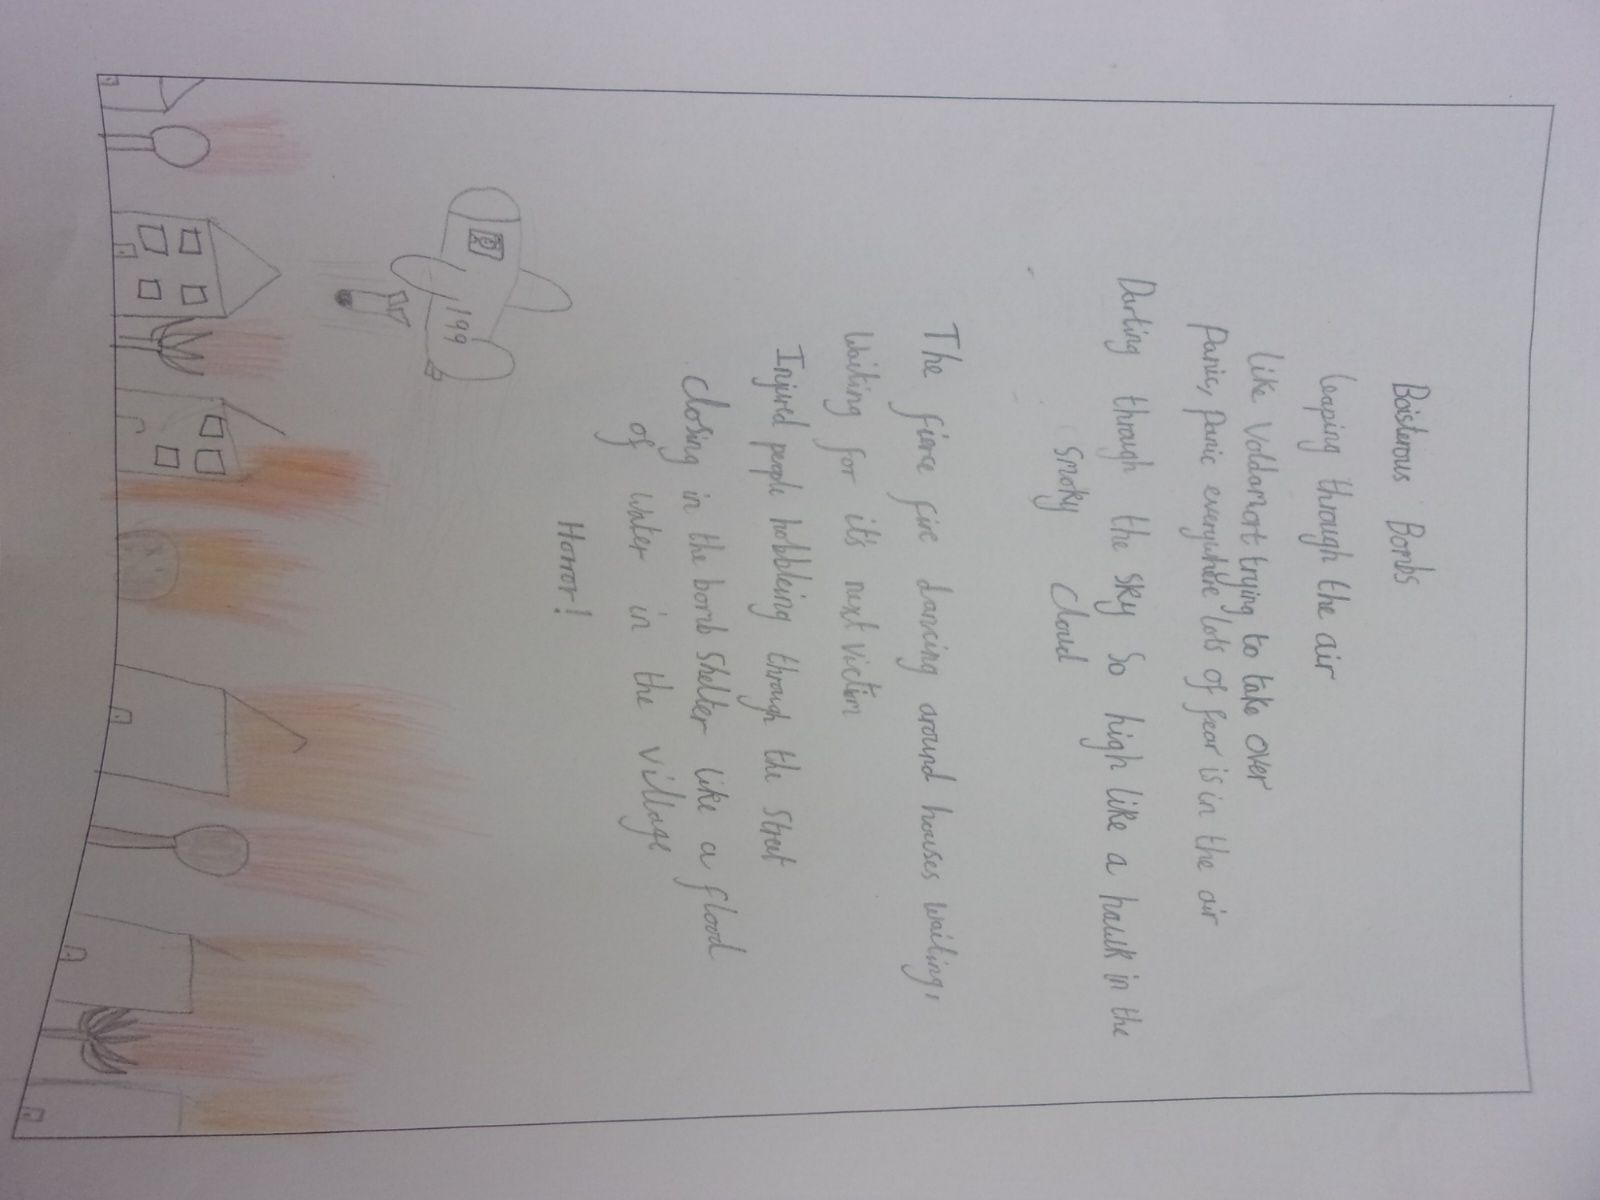 Boisterous Bombs
leaping through the air
like Voldamort trying to take over
Panic, panic everywhere lots of fear is in the air
Darting through the sky so high like a hawk in the
smoky cloud
The fierce fire dancing around houses waiting,
waiting for it's next victim
Injured people hobbleing through the street
closing in the bomb shelter like a flood
of water in the village
Horror!
199